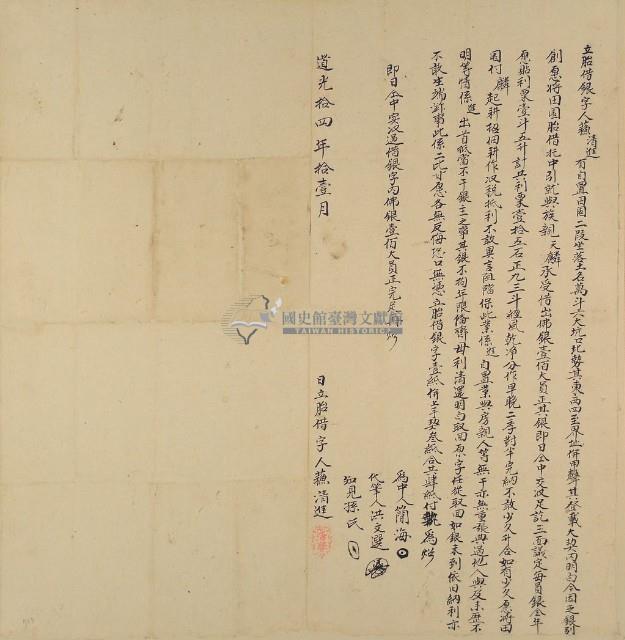 立胎借銀字人蘇清進有自置田園二段坐落土名萬斗六大坑口北勢其東西四至界址俱田聲其登載大契內明白今因乏銀別
創愿將田園胎借托中引就與族親天麟承受借出佛銀壹佰大員正其銀即日仝中交收足訖三面議定每員銀全年
應貼利粟壹斗五升計共利粟壹拾五石正九三斗經風乾凈分作早晚二季對半完納不敢少欠升合如有少欠愿將田
園付麟起耕招佃耕作收税抵利不敢異言阻隔保此業係進自置業與房親人等無干亦無重張典過他人與及來歷不
明等情係進出首抵當不干銀主之事其銀不拘年限備齊母利清還明白取回原字任從取回如銀未到依旧納利亦
不敢生端滋事此係二比甘愿各無反悔恐口無憑立胎借銀字壹紙併上手契叁紙合共肆紙付執為炤
即日仝中實收過借銀字內佛銀壹佰大員正完足再炤
為中人簡海
代筆人洪文選
知見孫氏
道光拾四年拾壹月 日立胎借字人蘇清進
國史館臺灣文獻館
TAIWAN HISTORICA